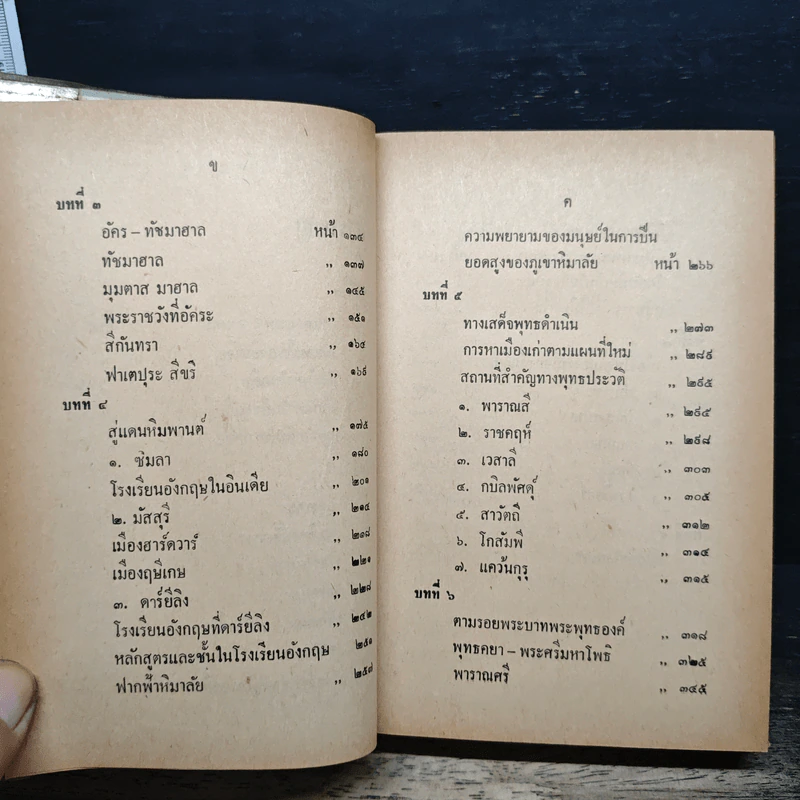 ข
บทที่ ๓
อัคร – ทัชมาฮาล หน้า ๑๓๔
ทัชมาฮาล ,, ๑๓๗
มุมตาส มาฮาล ,, ๑๔๕
พระราชวังที่อัคระ ,, ๑๕๑
สีกันทรา ,, ๑๖๔
ฟาเตปุระ สีขรี ,, ๑๖๙
บทที่ ๔
สู่แดนหิมพานต์ ,, ๑๗๕
๑. ซิมลา ,, ๑๘๐
โรงเรียนอังกฤษในอินเดีย ,, ๒๐๑
๒. มัสสุรี ,, ๒๑๔
เมืองฮาร์ดวาร์ ,, ๒๑๘
เมืองฤษีเกษ ,, ๒๒๑
๓. ดาร์ยีลิง ,, ๒๒๘
โรงเรียนอังกฤษที่ดาร์ยีลิง ,, ๒๔๒
หลักสูตรและชั้นในโรงเรียนอังกฤษ ๒๕๑
ฟากฟ้าหิมาลัย ,, ๒๕๗
ค
ความพยายามของมนุษย์ในการปีน
ยอดสูงของภูเขาหิมาลัย หน้า ๒๖๖
บทที่ ๕
ทางเสด็จพุทธดำเนิน ,, ๒๗๓
การหาเมืองเก่าตามแผนที่ใหม่ ,, ๒๘๙
สถานที่สำคัญทางพุทธประวัติ ,, ๒๙๕
๑. พาราณสี ,, ๒๙๕
๒. ราชคฤห์ ,, ๒๙๘
๓. เวสาลี ,, ๓๐๓
๔. กบิลพัศดุ์ ,, ๓๐๕
๕. สาวัตถี ,, ๓๑๒
๖. โกสัมพี ,, ๓๑๔
๗. แคว้นกุรุ ,, ๓๑๕
บทที่ ๖
ตามรอยพระบาทพระพุทธองค์ ,, ๓๑๘
พุทธคยา – พระศรีมหาโพธิ ,, ๓๒๕
พาราณศรี ,, ๓๔๕